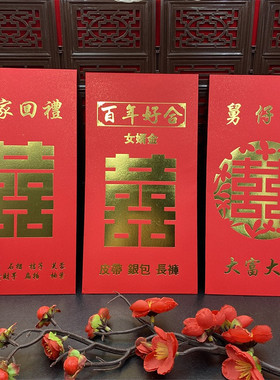 家回禮
囍
百年好合
女婿金
囍
皮帶 銀包 長褲
舅仔
囍
大富大